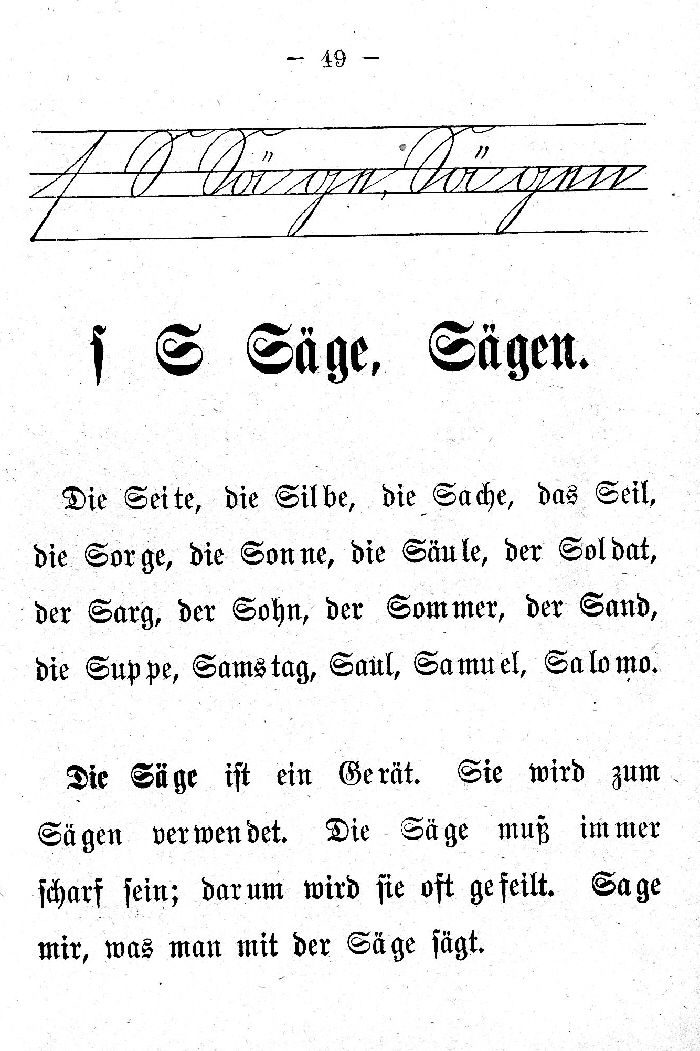 — 49 —
ſ S Säge, Sägen
ſ S Säge, Sägen.
Die Seite, die Silbe, die Sache, das Seil,
die Sorge, die Sonne, die Säule, der Soldat,
der Sarg, der Sohn, der Sommer, der Sand,
die Suppe, Samstag, Saul, Samuel, Salomo.
Die Säge iſt ein Gerät. Sie wird zum
Sägen verwendet. Die Säge muß immer
ſcharf ſein; darum wird ſie oft gefeilt. Sage
mir, was man mit der Säge ſägt.